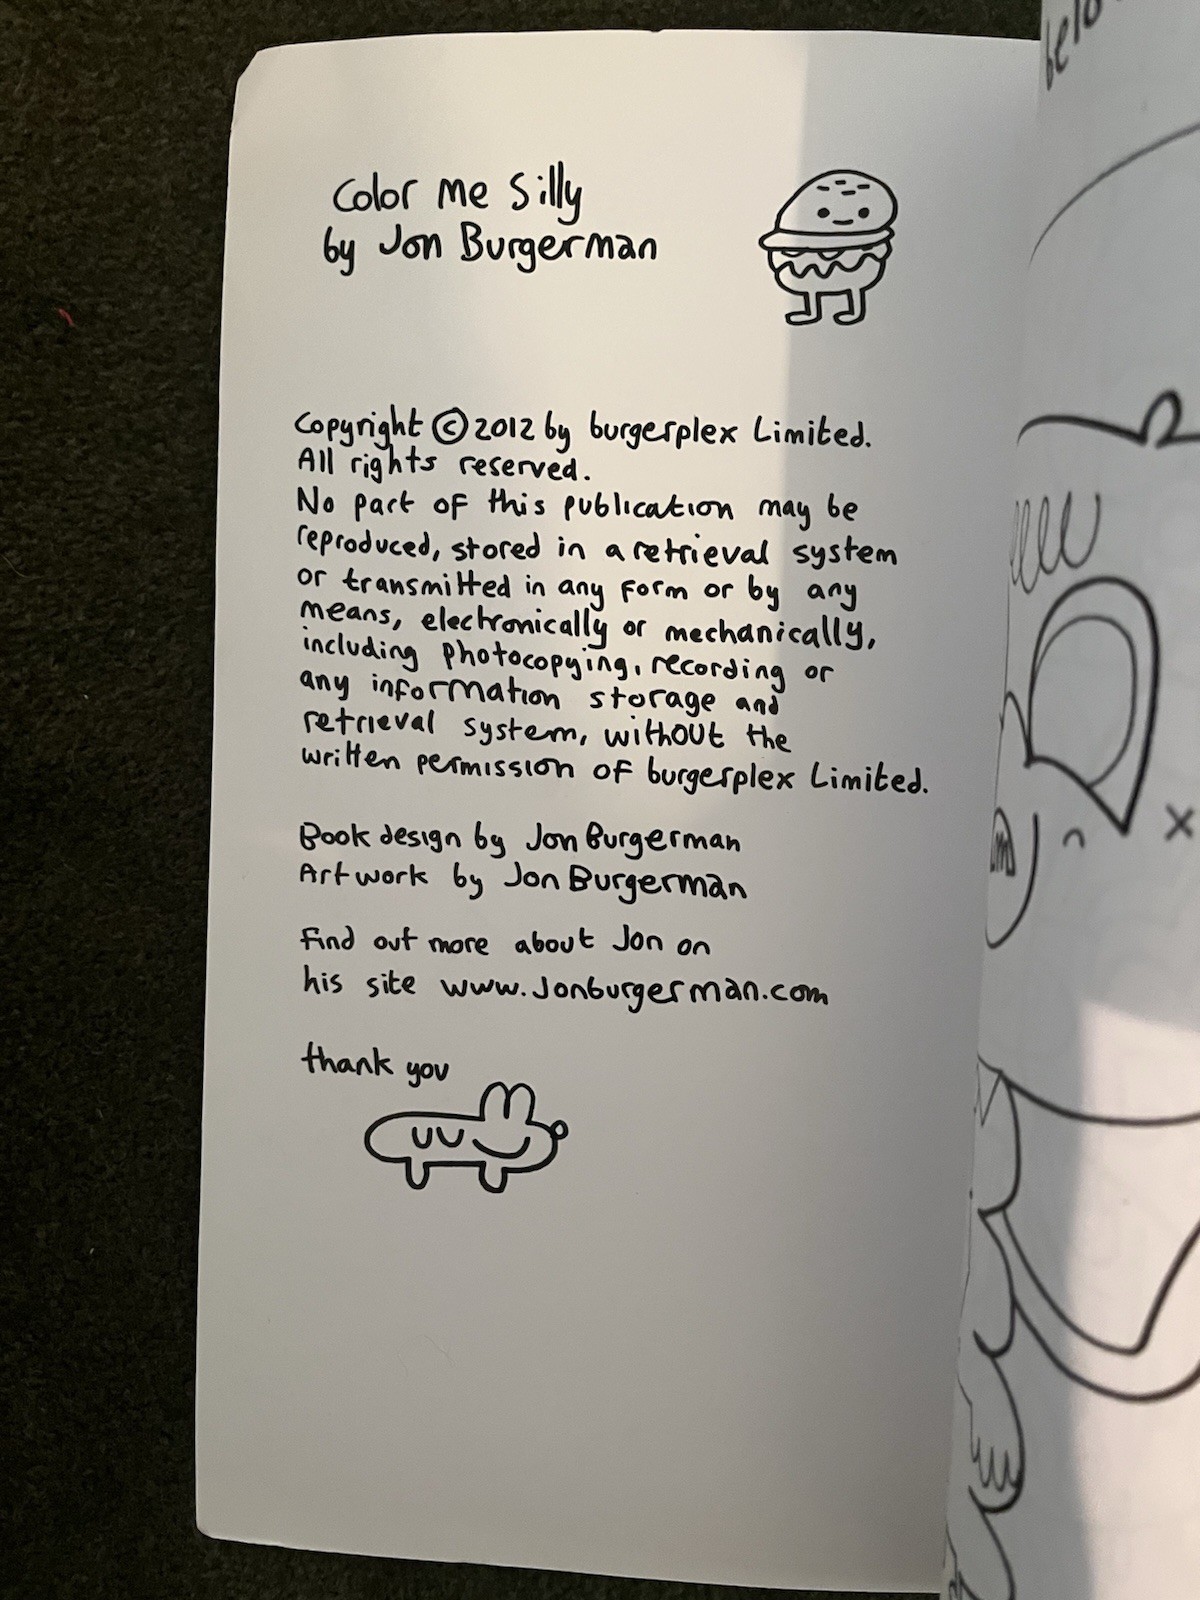 Color Me Silly
by Jon Burgerman
Copyright © 2012 by burgerplex Limited.
All rights reserved.
No part of this publication may be
reproduced, stored in a retrieval system
or transmitted in any form or by any
means, electronically or mechanically,
including photocopying, recording or
any information storage and
retrieval system, without the
written permission of burgerplex Limited.
Book design by Jon Burgerman
Artwork by Jon Burgerman
Find out more about Jon on
his site www.Jonburgerman.com
thank you